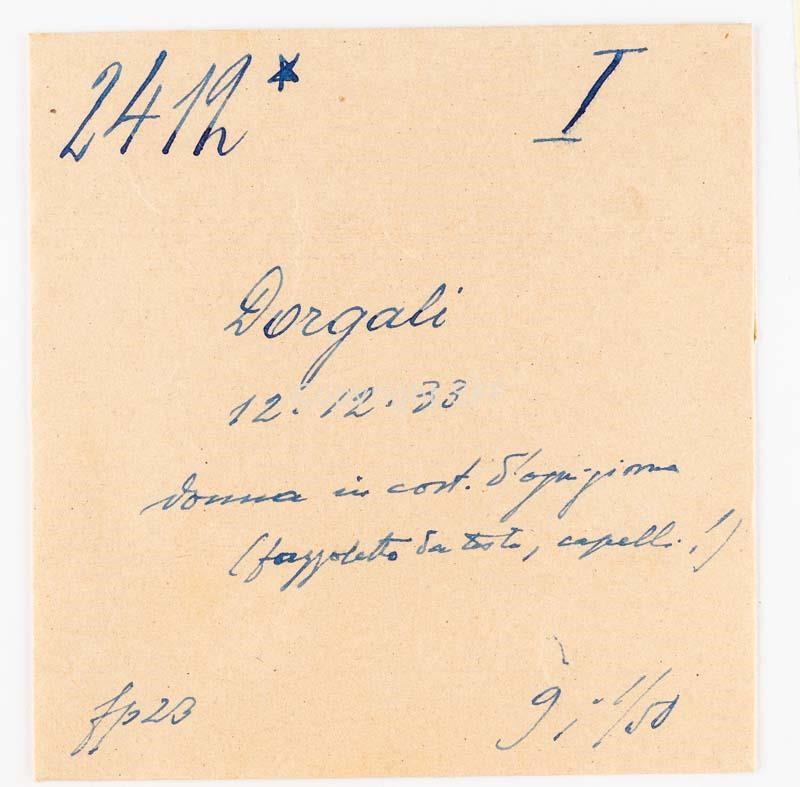 2412* I
Dorgali
12.12.33
donna in cost. d'ogni giorno
(fazzoletto da testa, capelli!)
fp23
9; 1/50